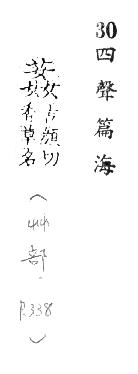 30 四聲篇海
葌古顔切
香草名
（艸部 P.338）